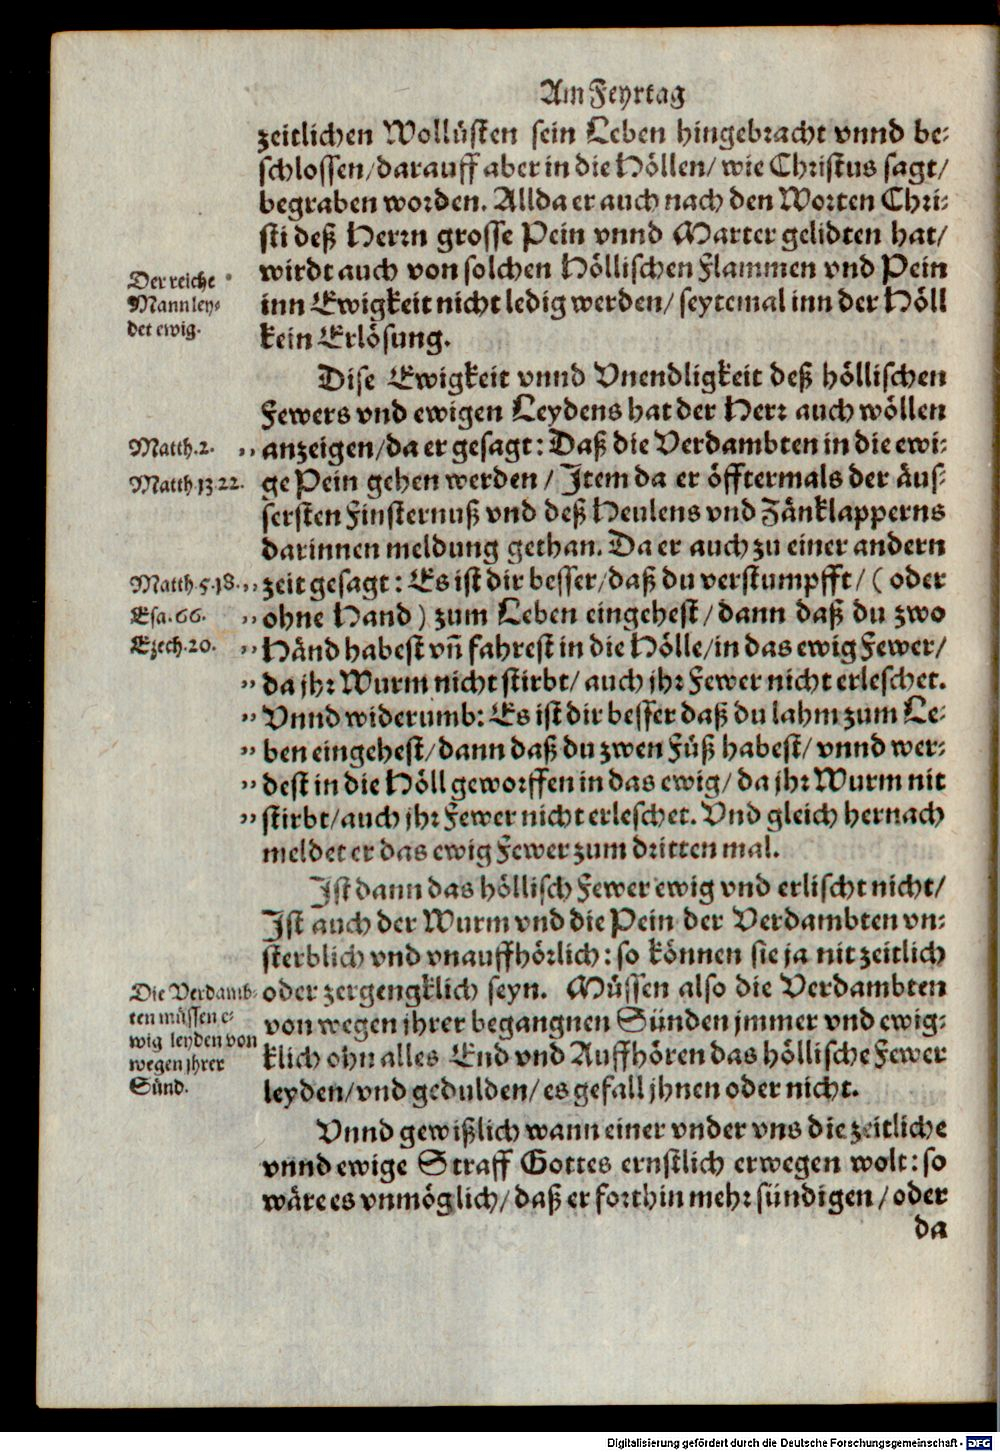 Am Feyrtag
zeitlichen Wollüsten sein Leben hingebracht vnnd be-
schlossen/darauff aber in die Höllen/ wie Christus sagt/
begraben worden. Allda er auch nach den Worten Chri-
sti deß Herrn grosse Pein vnnd Marter gelidten hat/
wirdt auch von solchen Höllischen Flammen vnd Pein
inn Ewigkeit nicht ledig werden/ seytemal inn der Höll
kein Erlösung.
Der reiche
Mann ley-
det ewig.
Dise Ewigkeit vnnd Vnendligkeit deß höllischen
Fewers vnd ewigen Leydens hat der Herr auch wöllen
Matth.2. ,, anzeigen/da er gesagt: Daß die Verdambten in die ewi-
Matth 13 22. ge Pein gehen werden / Item da er öfftermals der äus-
sersten Finsternuß vnd deß Heulens vnd Zänklapperns
darinnen meldung gethan. Da er auch zu einer andern
Matth 5.18. ,, zeit gesagt: Es ist dir besser/daß du verstumpfft/ ( oder
Esa. 66. ,, ohne Hand ) zum Leben eingehest/ dann daß du zwo
Ezech. 20. ,, Händ habest vñ fahrest in die Hölle/in das ewig Fewer/
,, da jhr Wurm nicht stirbt/ auch jhr Fewer nicht erleschet.
,, Vnnd widerumb: Es ist dir besser daß du lahm zum Le-
,, ben eingehest/dann daß du zwen Füß habest/ vnnd wer-
,, dest in die Höll geworffen in das ewig/ da jhr Wurm nit
,, stirbt/auch jhr Fewer nicht erleschet. Vnd gleich hernach
meldet er das ewig Fewer zum dritten mal.
Ist dann das höllisch Fewer ewig vnd erlischt nicht/
Ist auch der Wurm vnd die Pein der Verdambten vn-
sterblich vnd vnauffhörlich: so können sie ja nit zeitlich
oder zergengklich seyn. Müssen also die Verdambten
von wegen jhrer begangnen Sünden jmmer vnd ewig-
klich ohn alles End vnd Auffhören das höllische Fewer
leyden/vnd gedulden/ es gefall jhnen oder nicht.
Die Verdamb-
ten müssen e-
wig leyden von
wegen jhrer
Sünd.
Vnnd gewißlich wann einer vnder vns die zeitliche
vnnd ewige Straff Gottes ernstlich erwegen wolt: so
wäre es vnmöglich/ daß er forthin mehr sündigen / oder
da
Digitalisierung gefördert durch die Deutsche Forschungsgemeinschaft - DFG